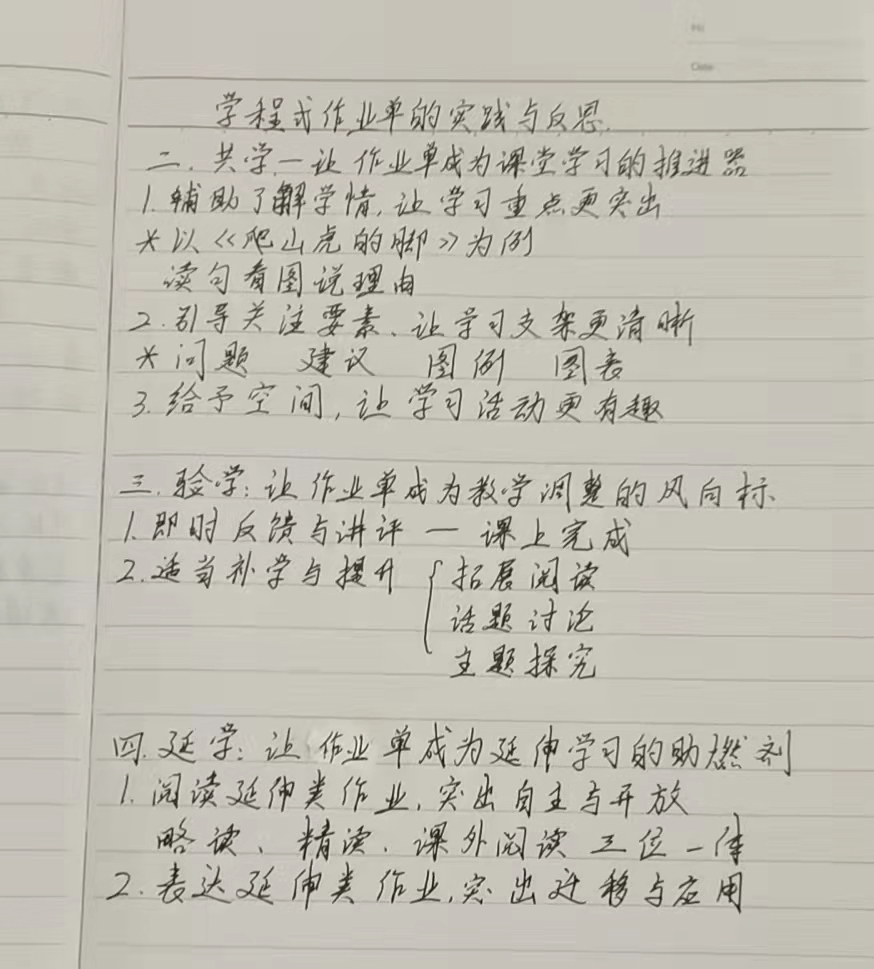 No
Date
学程式作业单的实践与反思.
二. 共学—让作业单成为课堂学习的推进器
1. 辅助了解学情, 让学习重点更突出
* 以《爬山虎的脚》为例
读句看图说理由
2. 引导关注要素、让学习支架更清晰
* 问题 建议 图例 图表
3. 给予空间, 让学习活动更有趣
三. 验学: 让作业单成为教学调整的风向标
1. 即时反馈与讲评 — 课上完成
2. 适当补学与提升 { 拓展阅读
话题讨论
主题探究
四. 延学: 让作业单成为延伸学习的助燃剂
1. 阅读延伸类作业, 突出自主与开放
略读、精读、课外阅读 三位一体
2. 表达延伸类作业, 突出迁移与应用